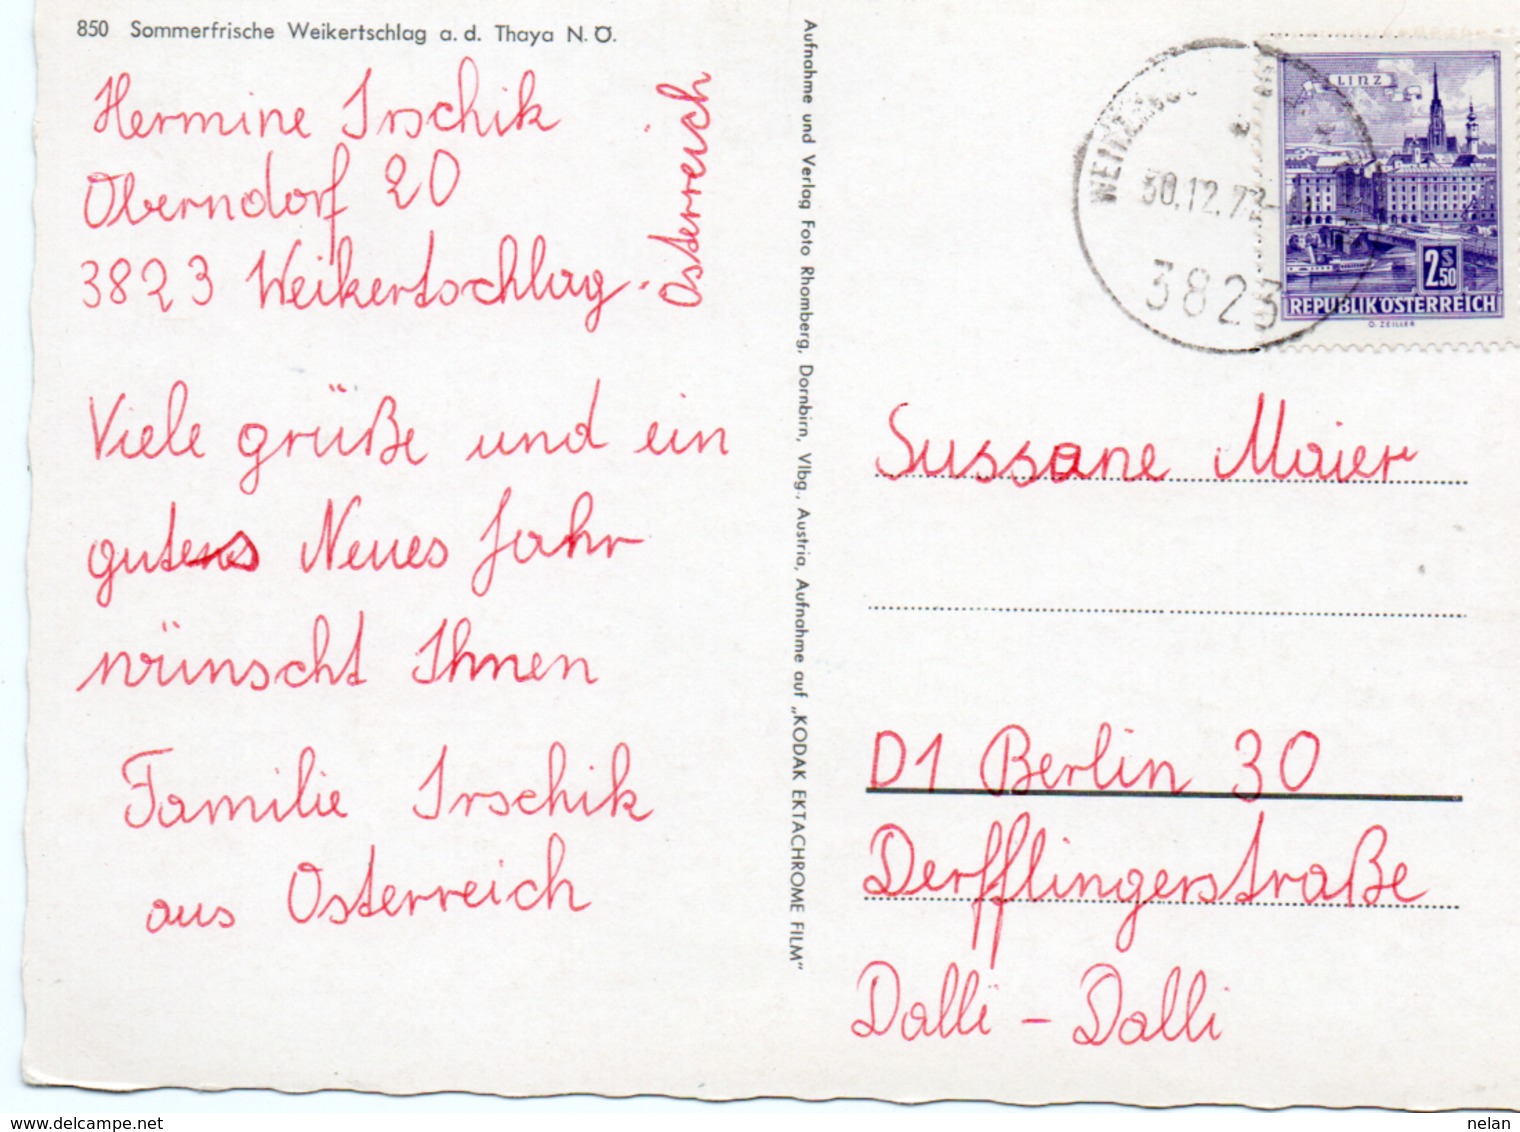 850 Sommerfrische Weikertschlag a. d. Thaya N. Ö.
Hermine Irschik
Oberndorf 20
3823 Weikertschlag.
Österreich
Viele grüße und ein
gutes Neues Jahr
wünscht Ihnen
Familie Irschik
aus Österreich
Aufnahme und Verlag Foto Rhomberg, Dornbirn, Vlbg., Austria, Aufnahme auf „KODAK EKTACHROME FILM"
30.12.7
3823
LINZ
2S50
REPUBLIK ÖSTERREICH
O. ZEILLER
Sussane Maier
D1 Berlin 30
Derfflingerstraße
Dalli - Dalli
www.delcampe.net
nelan